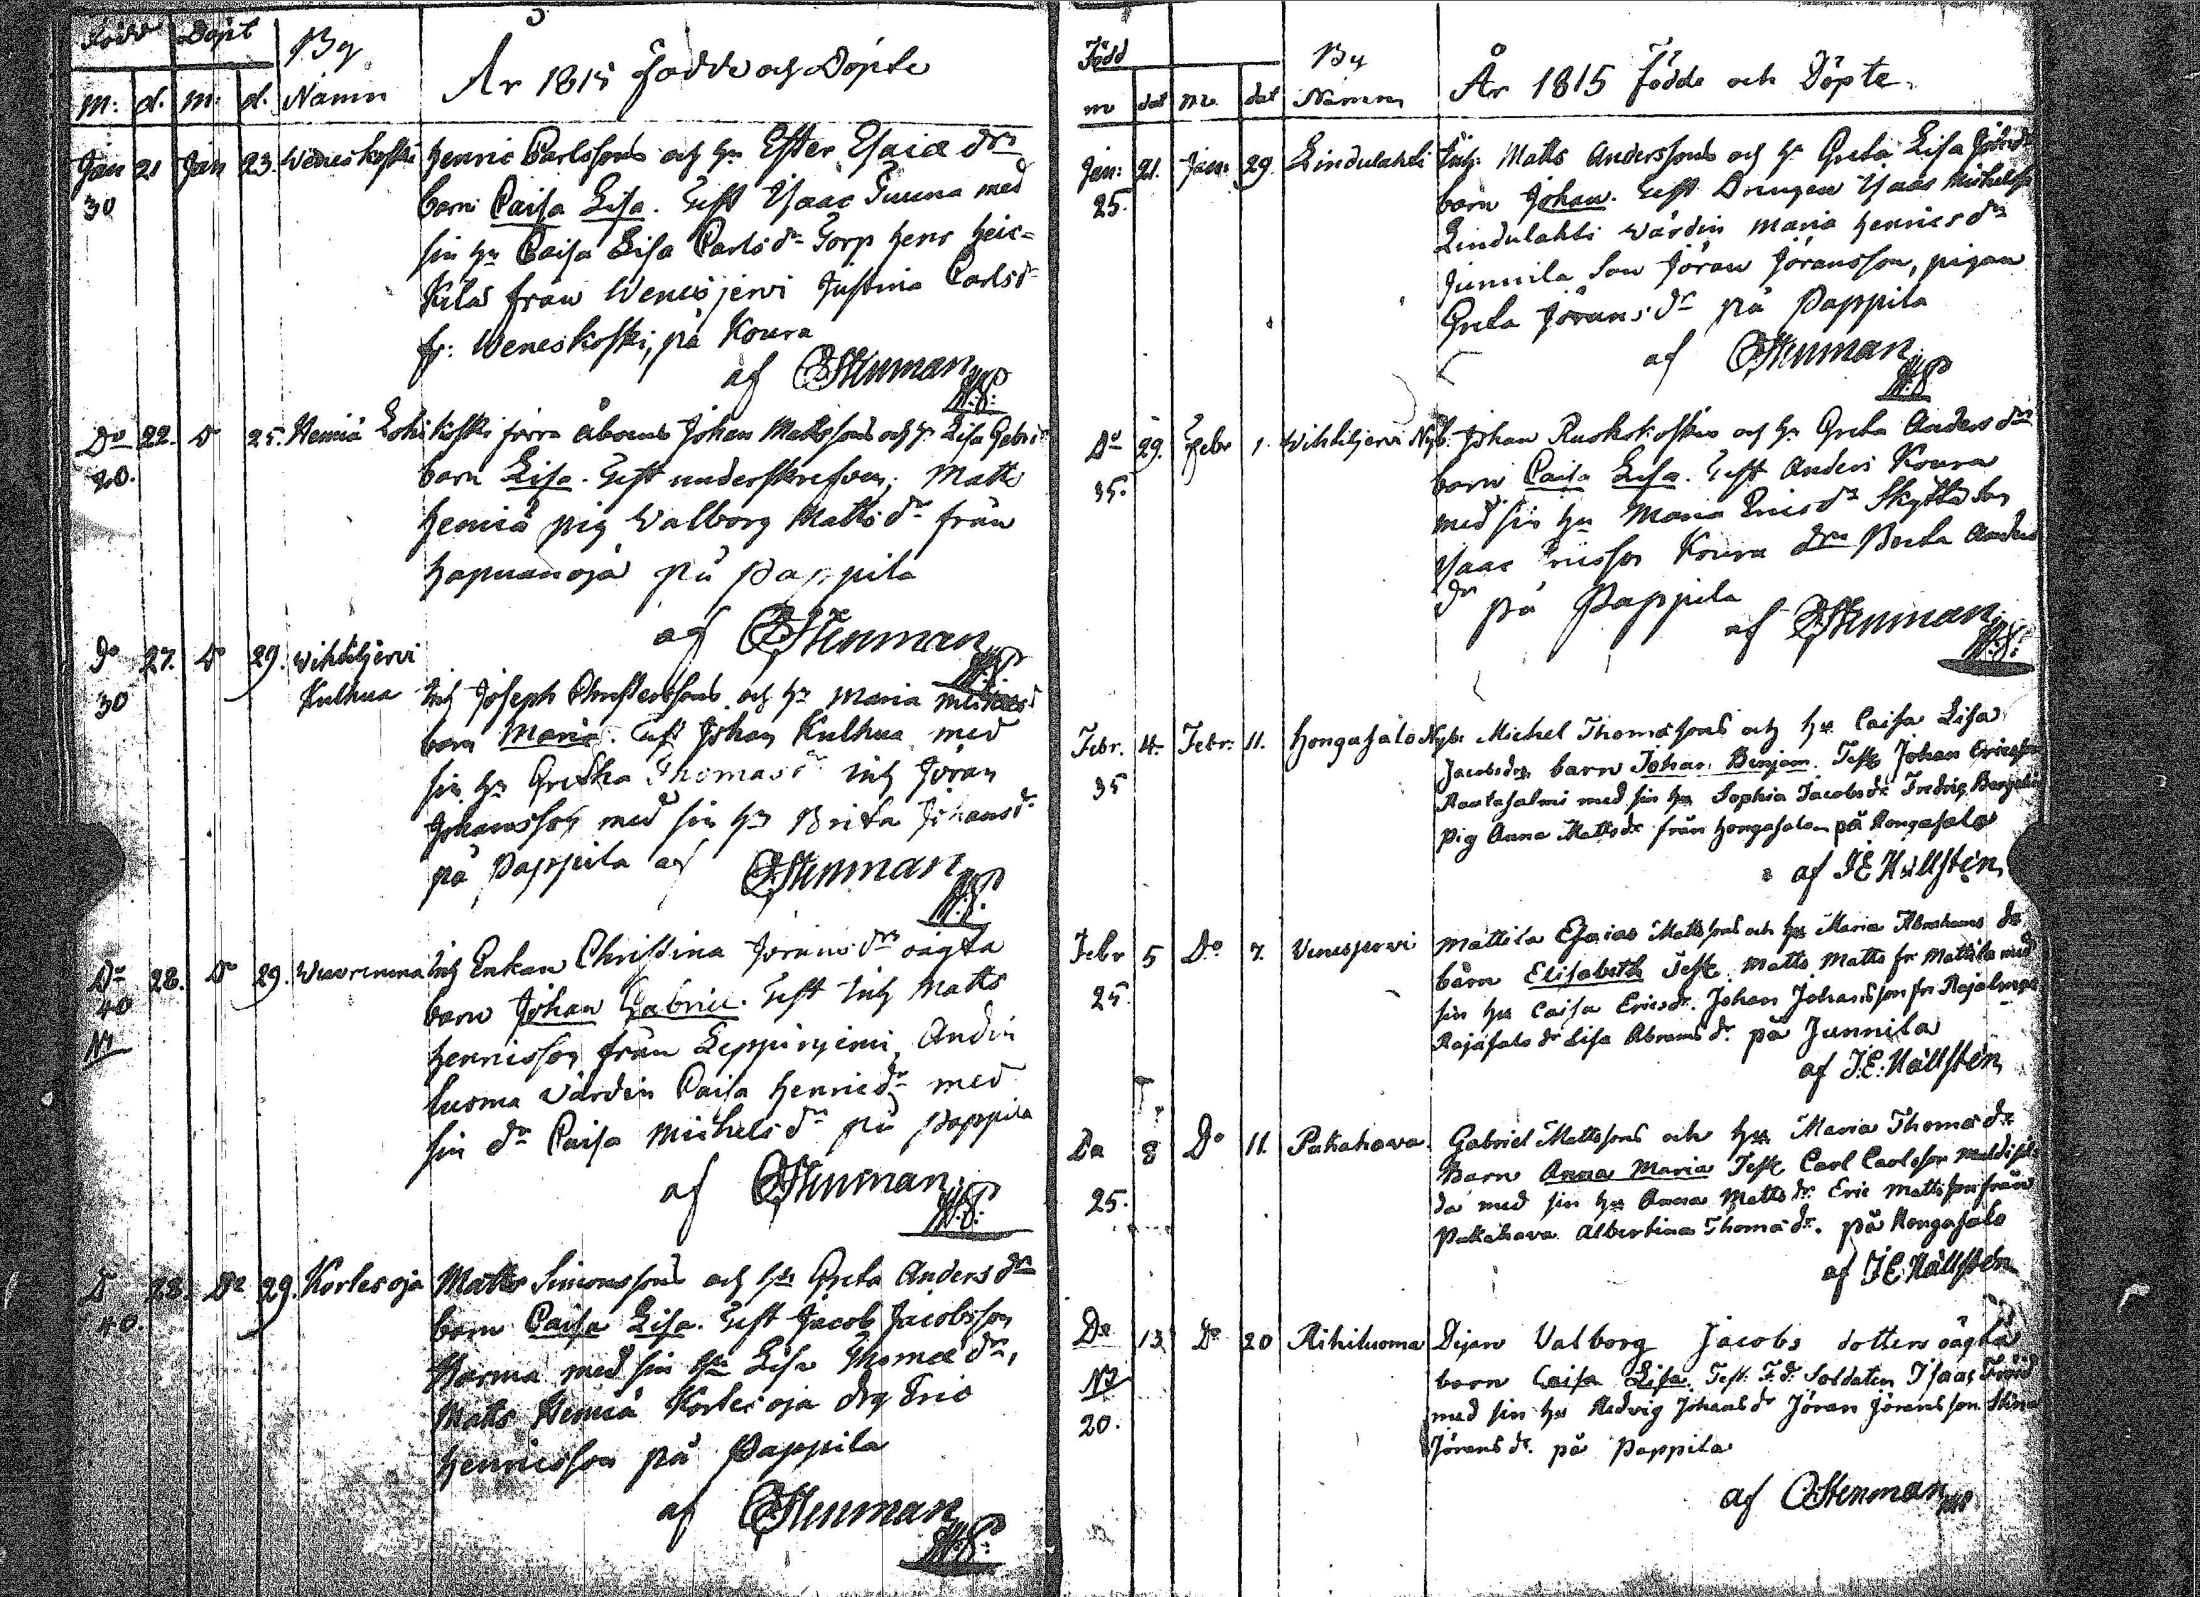 Född Döpt By
M: d. M: d. Namn
År 1815 Födde och Döpte
Jan 21 Jan 23. Weneskoski Henric Carlssons och h:u Ester Esaiæ d:rs
30 barn Caisa Lisa. Test Isaac Tuuna med
sin h:u Caisa Lisa Carls d:r Torp Henr Heic=
kilas från Wenesjervi Justina Carls d:r
fr: Weneskoski, på Koura
af CStenman
M:S:
D:o 22. D:o 25. Nemiä Lohikoski förra åboens Johan Mattssons och h:u Lisa Gabri:
20. barn Lisa. Test underskrefven, Matts
Hemiä pig Walborg Matts d:r från
Hapuanoja på Pappila
af CStenman
M:S:
D:o 27. D:o 29. Wihtiljervi
30 Kulhua Inh Joseph Christerssons och h:u Maria
barn Maria. Test Johan Kulhua med
sin h:u Gretha Thomas d:r Inh Jöran
Johansson med sin h:u Brita Johans d:r
på Pappila af CStenman
M:S:
D:o 28. D:o 29. Wuorenmaa Inh Enkan Christina Jörans d:rs oägta
40 barn Johan Gabriel. Test Inh Matts
N1 Henricsson från Leppiniemi, Andin
Luoma värdin Caisa Henrics d:r med
sin d:r Caisa Michels d:r på Pappila
af CStenman
M:S:
D:o 28. D:o 29. Kortesoja Matts Simonssons och h:u Greta Anders d:rs
40. barn Caisa Lisa. Test Jacob Jacobsson
Harma med sin h:u Lisa Thomæ d:r,
Matts Nemiä Kortesoja drg Eric
Henricsson på Pappila
af CStenman
M:S:
Född By
m dat m dat Namn
År 1815 Födde och Döpte.
Jan: 21. Jan: 29 Lindulahti Inh: Matts Anderssons och h:u Greta Lisa
25. barn Johan. Test Drengen Isaac Michelss
Lindulahti värdin Maria Henrics d:r
Junnila Son Jöran Jöransson, pigan
Greta Jörans d:r på Pappila
af CStenman
M:S:
D:o 29. Febr 1. Wihtiljervi Nyb. Johan Ruohokoskis och h:u Greta Anders d:rs
35. barn Caisa Lisa. Test Anders Koura
med sin h:u Maria Erics d:r Skytts Son
Isaac Ericsson Koura d:rn Berta Anders
d:r på Pappila
af CStenman
M:S:
Febr. 4. Febr: 11. Hongasalo Nyb: Michel Thomæsons och h:u Caisa Lisa
35 Jacobs d:rs barn Johan Benjam. Test Johan Ericsson
Rautasalmi med sin h:u Sophia Jacobs d:r Fredric
Pig Anna Matts d:r från Hongasalo på Hongasalo
af J E Hällstén
Febr 5 D:o 7. Venesjervi Mattila Esaias Mattssons och h:u Maria Abrahams d:rs
25 barn Elisabeth Test. Matts Matts fr. Mattila med
sin h:u Caisa Erics d:r. Johan Johansson fr
Rajasalo d:r Lisa Abrams d:r. på Junnila
af J.E. Hällstén
D:o 8 D:o 11. Pukahava. Gabriel Mattssons och h:u Maria Thomæ d:rs
25. Barn Anna Maria Test Carl Carlsson
da med sin h:u Anna Matts d:r Eric Mattsson från
Pukahava Albertina Thomæ d:r. på Hongasalo
af J E Hällstén
D:o 13 D:o 20 Rihiluoma Dejan Valborg Jacobs dotters oägta
N2 barn Caisa Lisa. Test. F. d. Soldaten Isaac
20. med sin h:u Hedvig Johans d:r Jöran Jöransson Stina
Jörans d:r. på Pappila
af CStenman